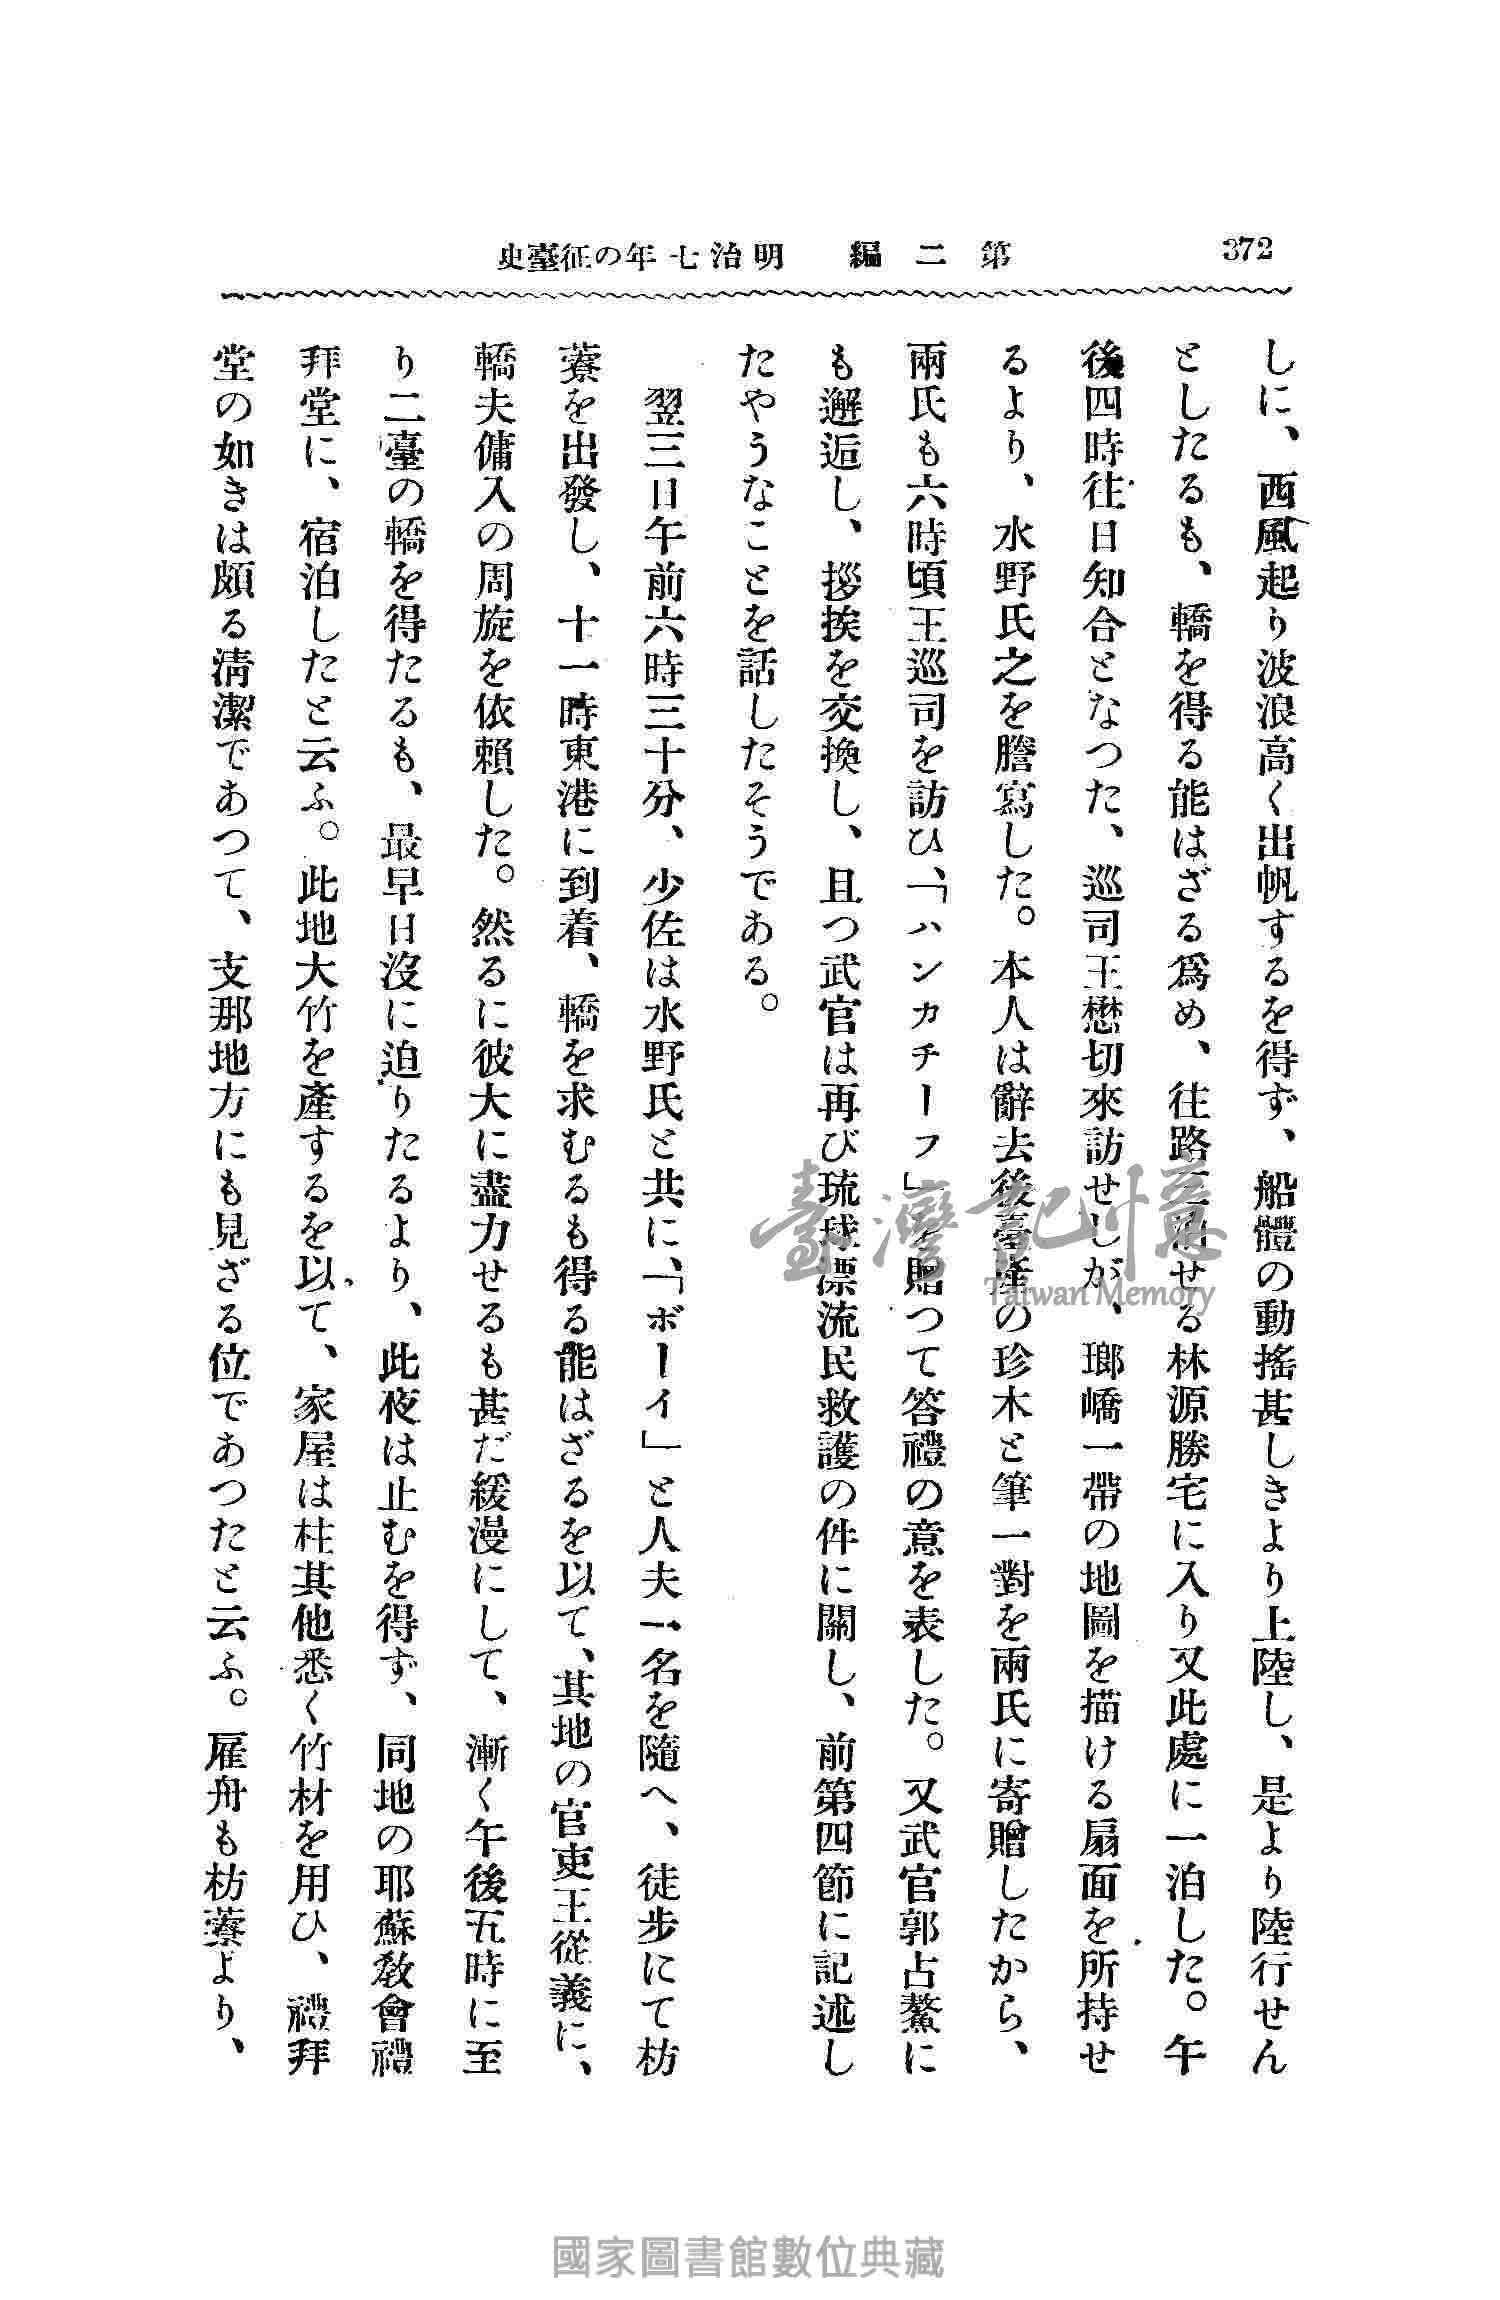 372
第二編 明治七年の征臺史
しに、西風起り波浪高く出帆するを得ず、船體の動搖甚しきより上陸し、是より陸行せん
としたるも、轎を得る能はざる爲め、往路三泊せる林源勝宅に入り又此處に一泊した。午
後四時往日知合となつた、巡司王懋切來訪せしが、瑯嶠一帶の地圖を描ける扇面を所持せ
るより、水野氏之を謄寫した。本人は辭去後臺產の珍木と筆一對を兩氏に寄贈したから、
兩氏も六時頃王巡司を訪ひ、「ハンカチーフ」を贈つて答禮の意を表した。又武官郭占鰲に
も邂逅し、拶挨を交換し、且つ武官は再び琉球漂流民救護の件に關し、前第四節に記述し
たやうなことを話したそうである。
翌三日午前六時三十分、少佐は水野氏と共に、「ボーイ」と人夫一名を隨へ、徒步にて枋
藔を出發し、十一時東港に到着、轎を求むるも得る能はざるを以て、其地の官吏王從義に、
轎夫傭入の周旋を依賴した。然るに彼大に盡力せるも甚だ緩漫にして、漸く午後五時に至
り二臺の轎を得たるも、最早日沒に迫りたるより、此夜は止むを得ず、同地の耶蘇敎會禮
拜堂に、宿泊したと云ふ。此地大竹を產するを以て、家屋は柱其他悉く竹材を用ひ、禮拜
堂の如きは頗る淸潔であつて、支那地方にも見ざる位であつたと云ふ。雇舟も枋藔より、
臺灣記憶
Taiwan Memory
國家圖書館數位典藏